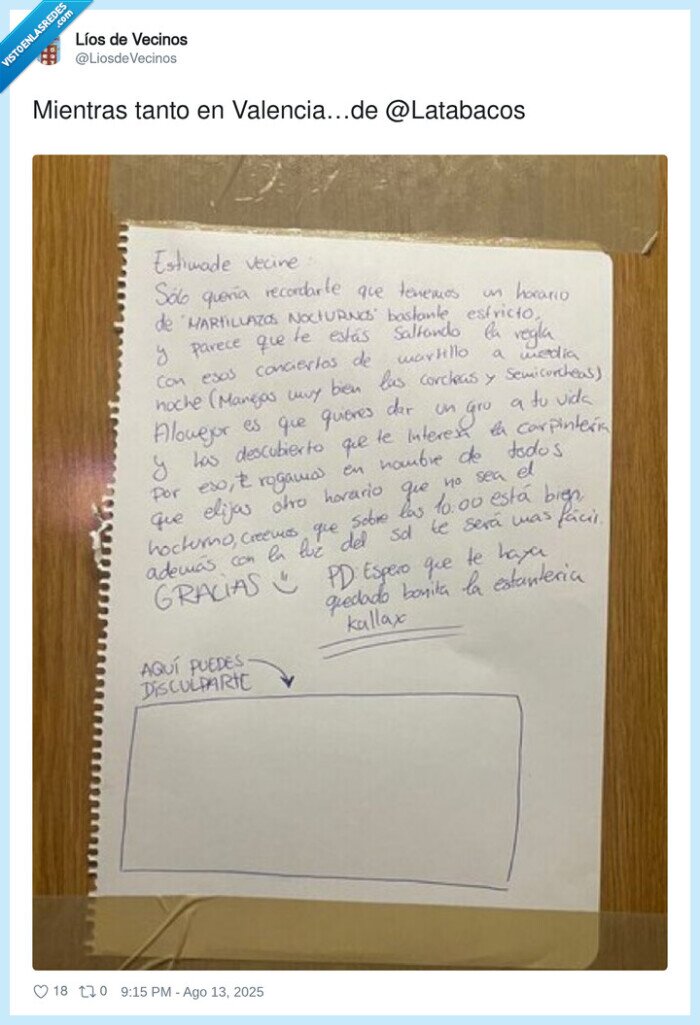 VISTOENLASREDES
.com
Líos de Vecinos
@LiosdeVecinos
Mientras tanto en Valencia…de @Latabacos
Estimade vecine:
Sólo quería recordarte que tenemos un horario
de "MARTILLAZOS NOCTURNOS" bastante estricto,
y parece que te estás saltando la regla
con esos conciertos de martillo a media
noche (Manejas muy bien las corcheas y semicorcheas)
Alomejor es que quieres dar un giro a tu vida
y has descubierto que te interesa la carpintería
Por eso, te rogamos en nombre de todos
que elijas otro horario que no sea el
nocturno, creemos que sobre las 10:00 está bien,
además con la luz del sol te será mas fácil.
GRACIAS
PD: Espero que te haya
quedado bonita la estantería
Kallax
AQUÍ PUEDES
DISCULPARTE
18 0 9:15 PM - Ago 13, 2025